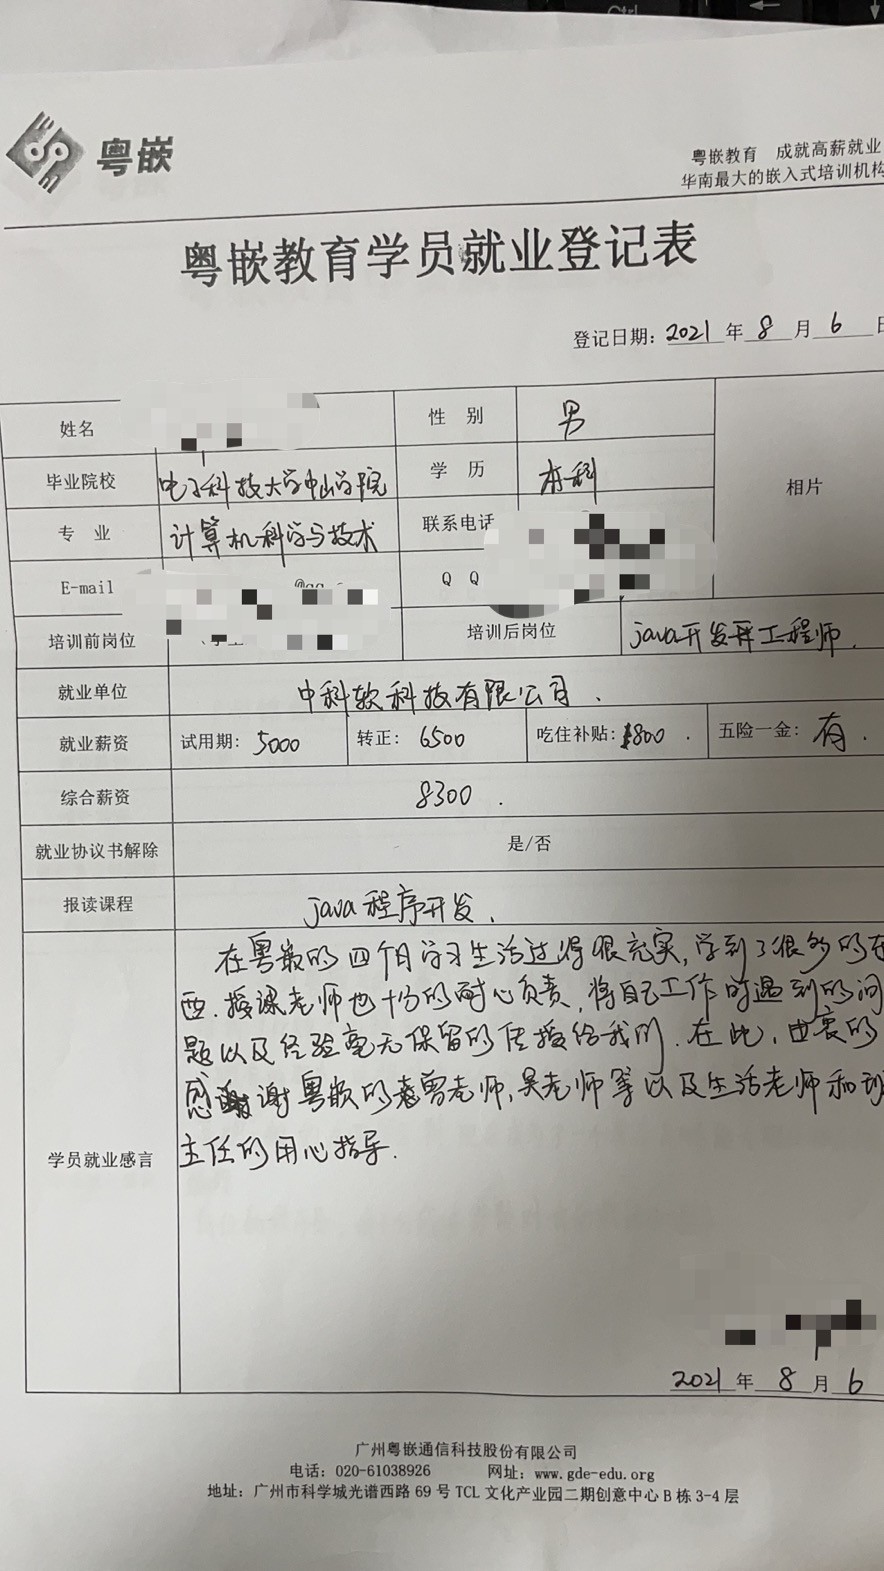 Ctrl
粤嵌
粤嵌教育 成就高薪就业
华南最大的嵌入式培训机构
粤嵌教育学员就业登记表
登记日期：2021年8月6日
姓名
性 别 男
相片
毕业院校 电子科技大学中山学院 学 历 本科
专 业 计算机科学与技术 联系电话
E-mail Q Q
培训前岗位 培训后岗位 java开发工程师.
就业单位 中科软科技有限公司.
就业薪资 试用期：5000 转正：6500 吃住补贴：1800. 五险一金：有.
综合薪资 8300.
就业协议书解除 是/否
报读课程 java程序开发.
学员就业感言
在粤嵌的四个月学习生活过得很充实,学到了很多的东
西.授课老师也十分的耐心负责,将自己工作时遇到的问
题以及经验毫无保留的传授给我们.在此,由衷的
感谢粤嵌的曾老师,吴老师等以及生活老师和班
主任的用心指导.
2021年8月6
广州粤嵌通信科技股份有限公司
电话：020-61038926 网址：www.gde-edu.org
地址：广州市科学城光谱西路 69 号 TCL 文化产业园二期创意中心 B 栋 3-4 层